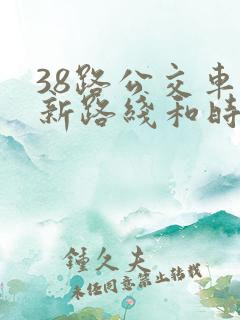 38路公交車
新路綫和時
鍾久夫
未經同意禁止轉載